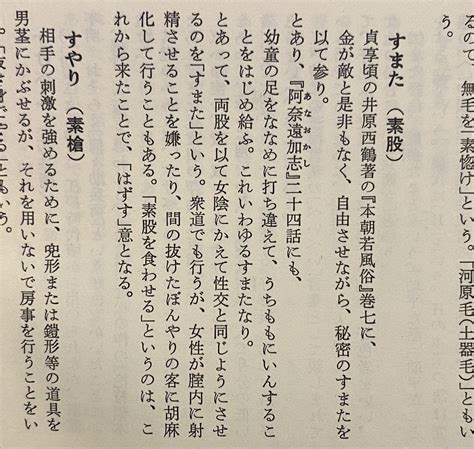 るので、無毛を「素惚け」という。「河原毛(土器毛)」ともい
う。
すまた (素股)
貞享頃の井原西鶴著の『本朝若風俗』巻七に、
金が敵と是非もなく、自由させながら、秘密のすまたを
以て参り。
とあり、『阿奈遠加志』二十四話にも、
あなおかし
幼童の足をななめに打ち違えて、うちももにいんするこ
とをはじめ給ふ。これいわゆるすまたなり。
とあって、両股を以て女陰にかえて性交と同じようにさせ
るのを「すまた」という。衆道でも行うが、女性が膣内に射
精させることを嫌ったり、間の抜けたぼんやりの客に胡麻
化して行うこともある。「素股を食わせる」というのは、こ
れから来たことで、「はずす」意となる。
すやり (素槍)
相手の刺激を強めるために、兜形または鎧形等の道具を
男茎にかぶせるが、それを用いないで房事を行うことをい